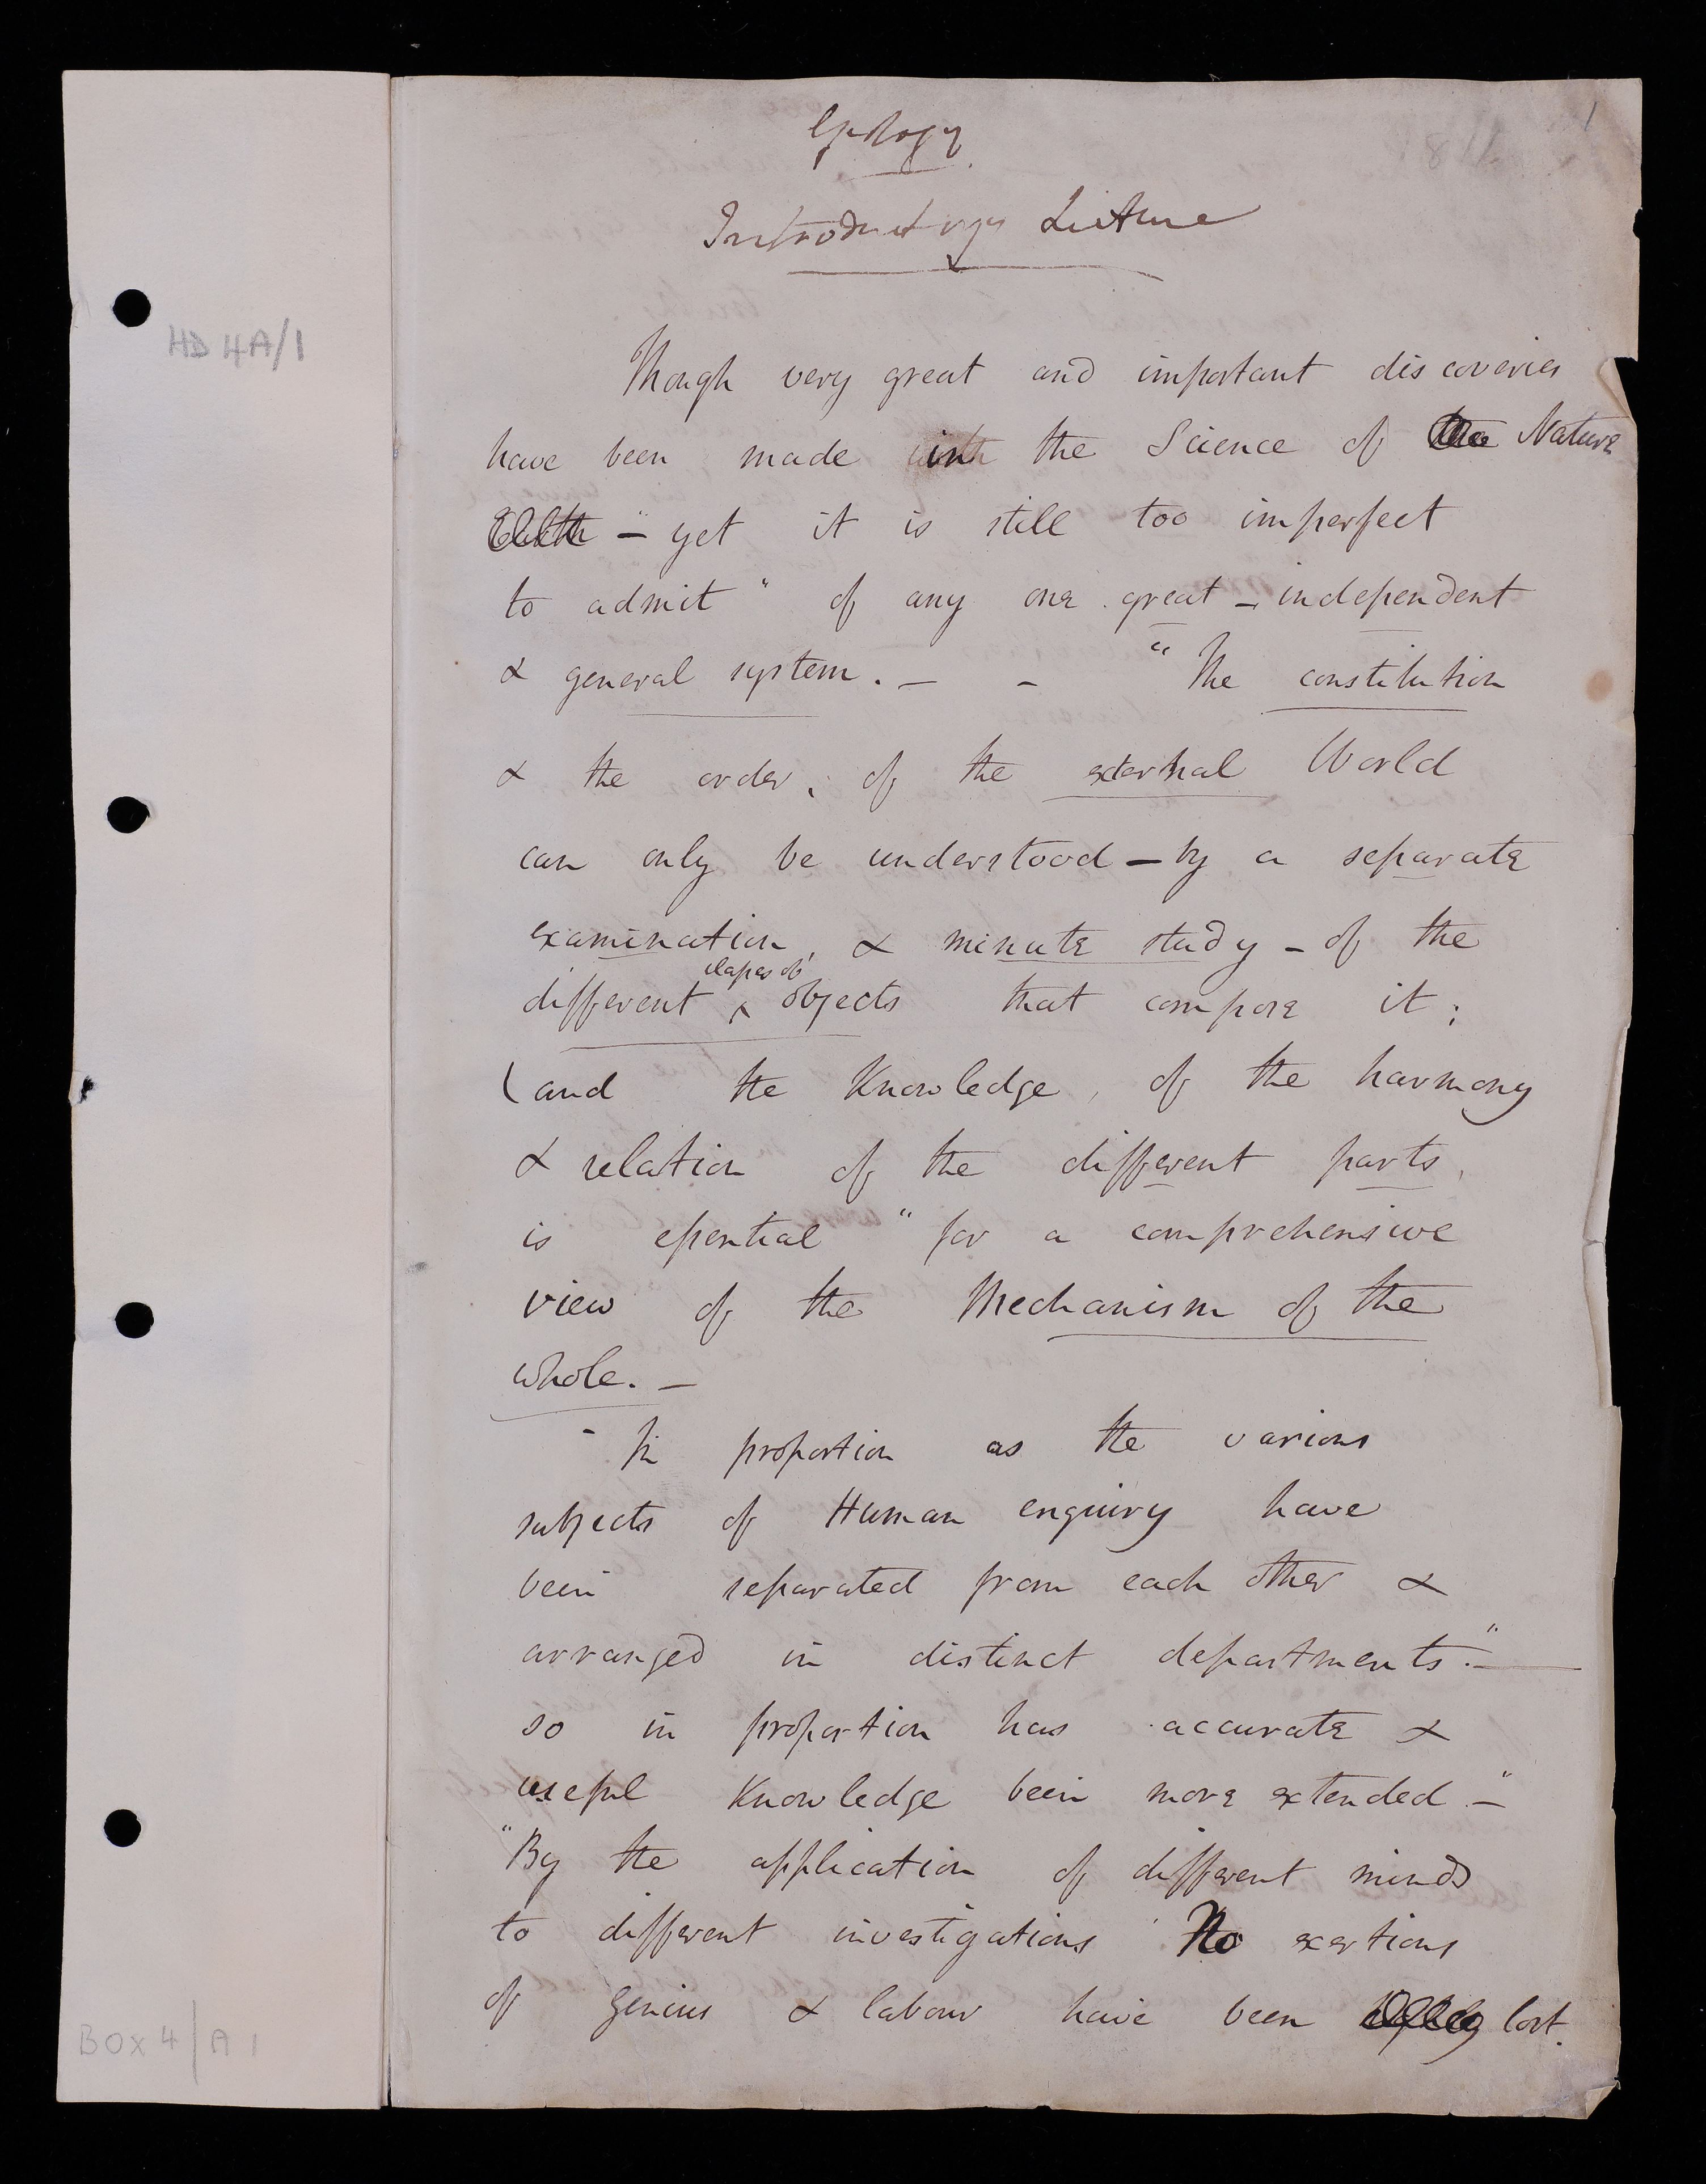 Geology
Introductory Lecture
1
HD 4A/1
Though very great and important discoveries
have been made in the Science of Nature
– yet it is still too imperfect
to admit " of any one great – independent
& general system. – – " The constitution
& the order, of the external World
can only be understood – by a separate
examination, & minute study – of the
classes of
different ^ objects that compose it;
(and the Knowledge, of the harmony
& relation of the different parts,
is essential " for a comprehensive
view of the Mechanism of the
whole. –
- In proportion as the various
subjects of Human enquiry have
been separated from each other &
arranged in distinct departments." –
so in proportion has accurate &
useful Knowledge been more extended –"
"By the application of different minds
to different investigations No exertions
of genius & labour have been lost.
BOX 4/A 1